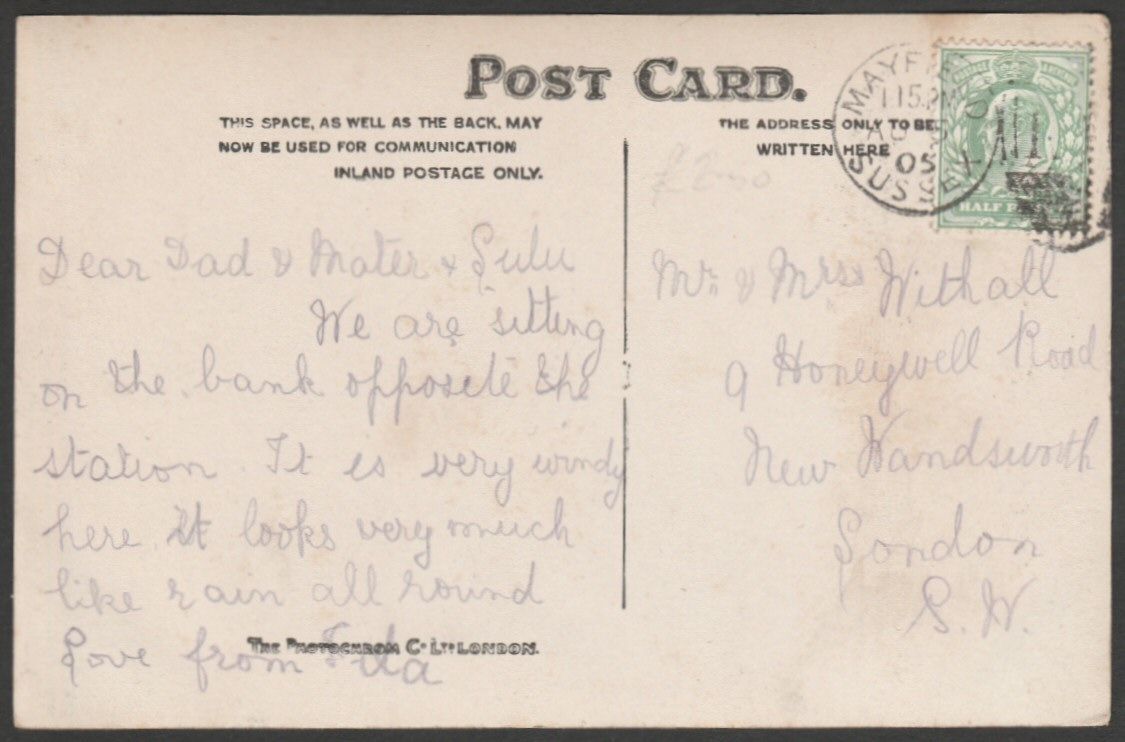 POST CARD.
THIS SPACE, AS WELL AS THE BACK, MAY
NOW BE USED FOR COMMUNICATION
INLAND POSTAGE ONLY.
THE ADDRESS ONLY TO BE
WRITTEN HERE
MAYFI
1.15PM
AU 5
05
SUSSEX
HALF PE
£2.00
Dear Dad & Mater & Lulu
We are sitting
on the bank opposite the
station. It is very windy
here. It looks very much
like rain all round
Love from
THE PHOTOCHROM CO LTD LONDON.
Mr. & Mrs Withall
9 Honeywell Road
New Wandsworth
London
S.W.